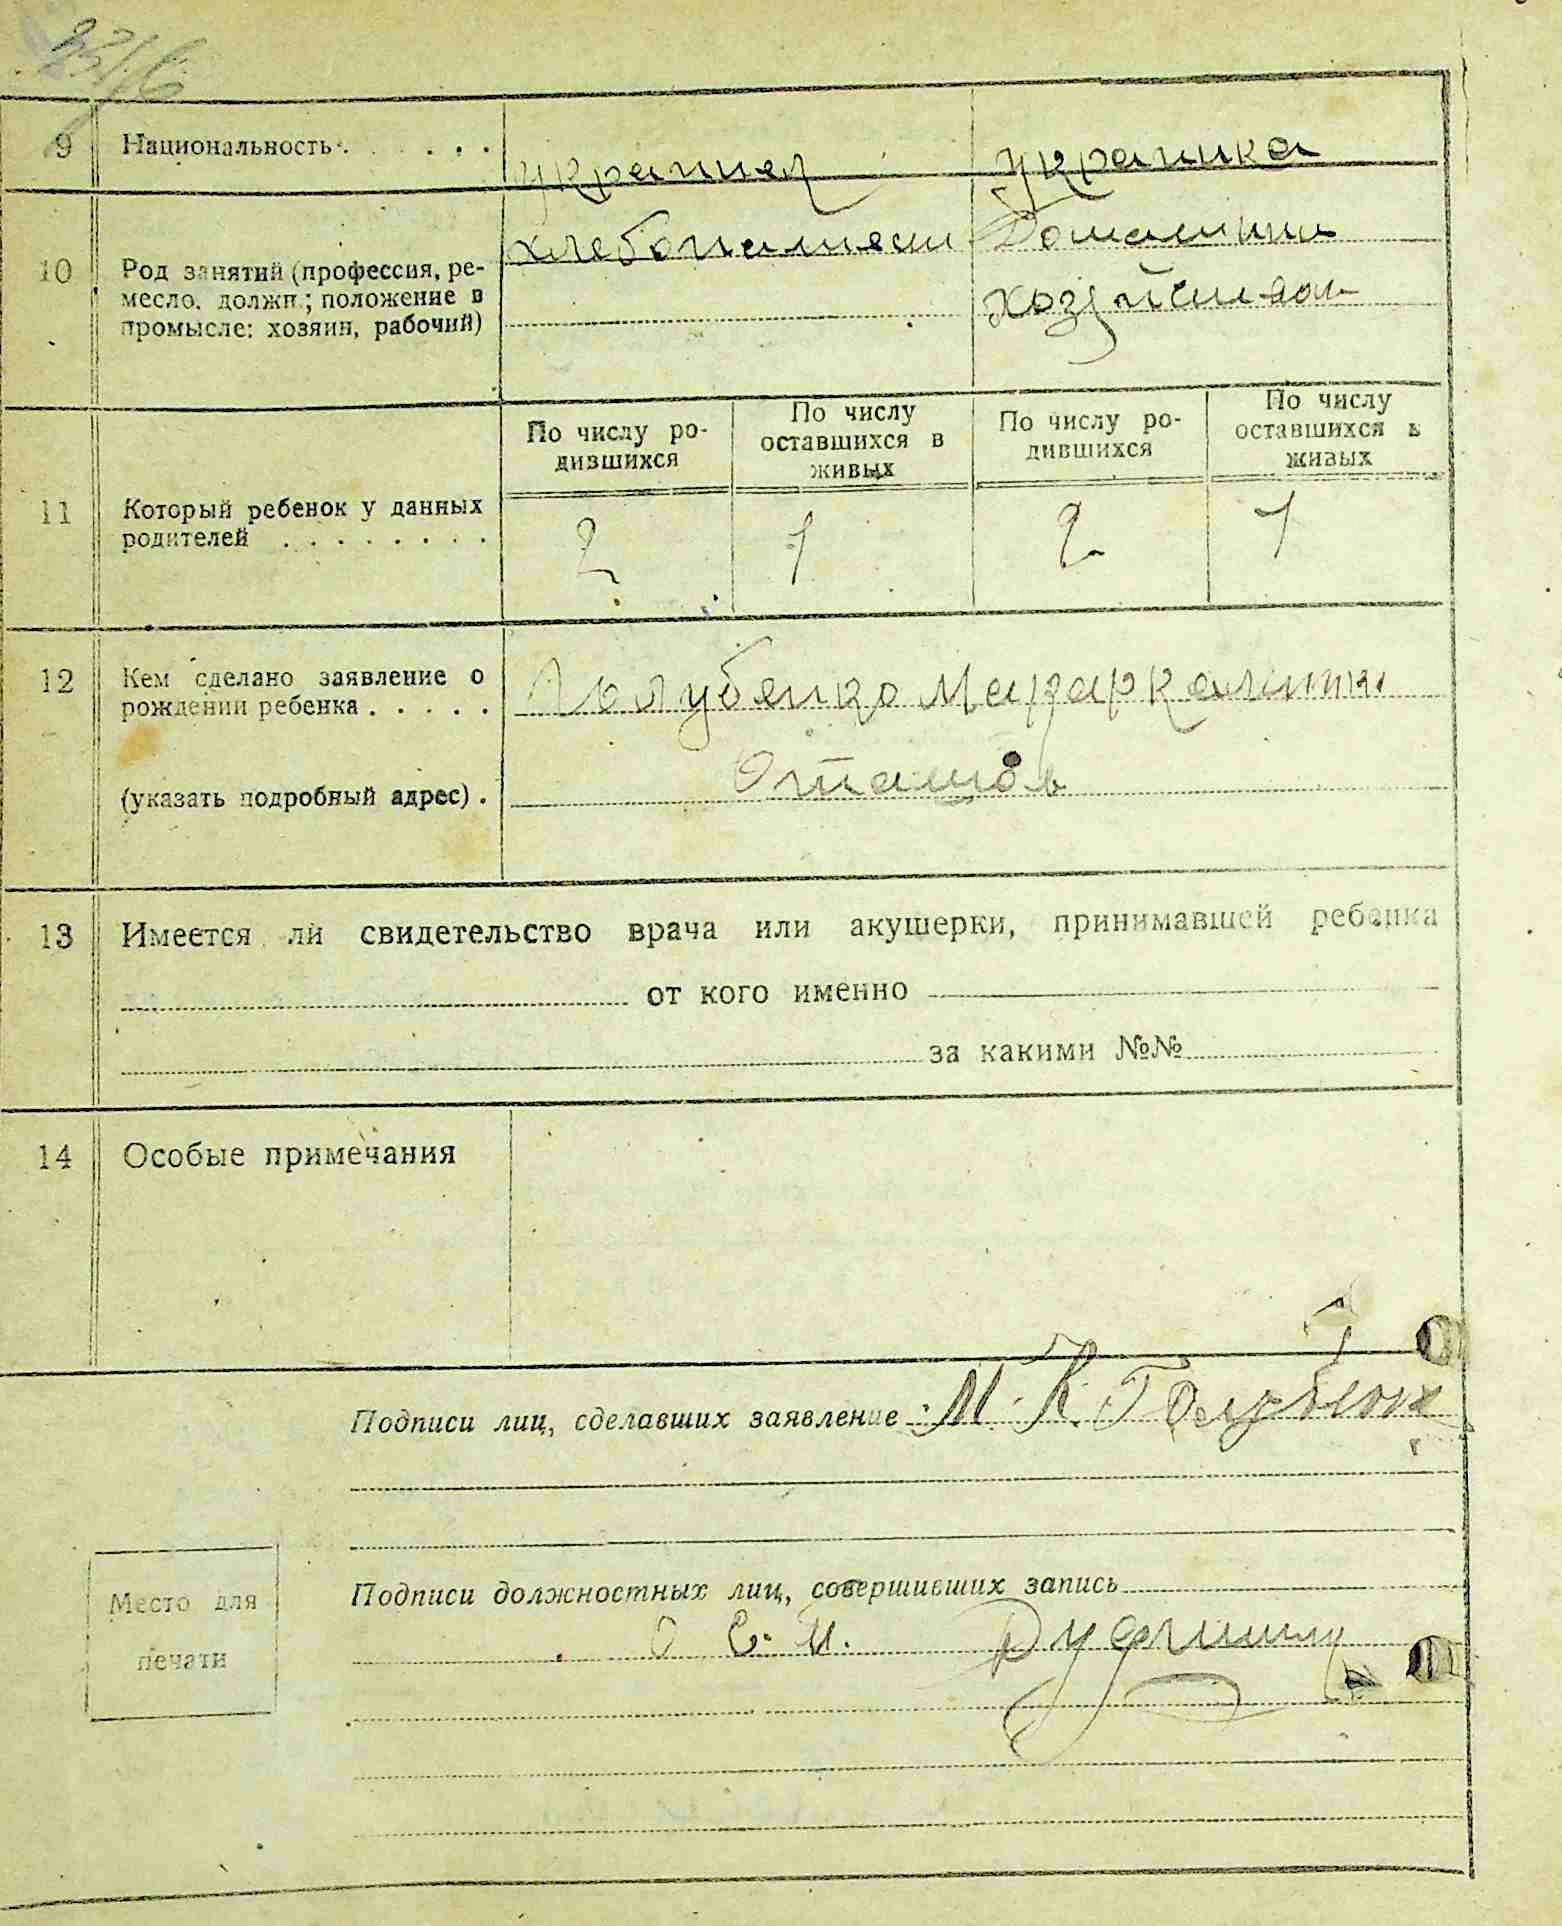 9 Национальность . . . . . . украинец украинка
10 Род занятий (профессия, ре-
месло, должн.; положение в
промысле: хозяин, рабочий)
хлебопашеств Домашним
хозяйством
По числу ро-
дившихся
По числу
оставшихся в
живых
По числу ро-
дившихся
По числу
оставшихся в
живых
11 Который ребенок у данных
родителей . . . . . . . .
2 1 2 1
12 Кем сделано заявление о
рождении ребенка . . . . .
Голубенко
(указать подробный адрес) .
13 Имеется ли свидетельство врача или акушерки, принимавшей ребенка
от кого именно
за какими №№
14 Особые примечания
Подписи лиц, сделавших заявление М. К. Голубенк
Подписи должностных лиц, совершивших запись
Место для
печати